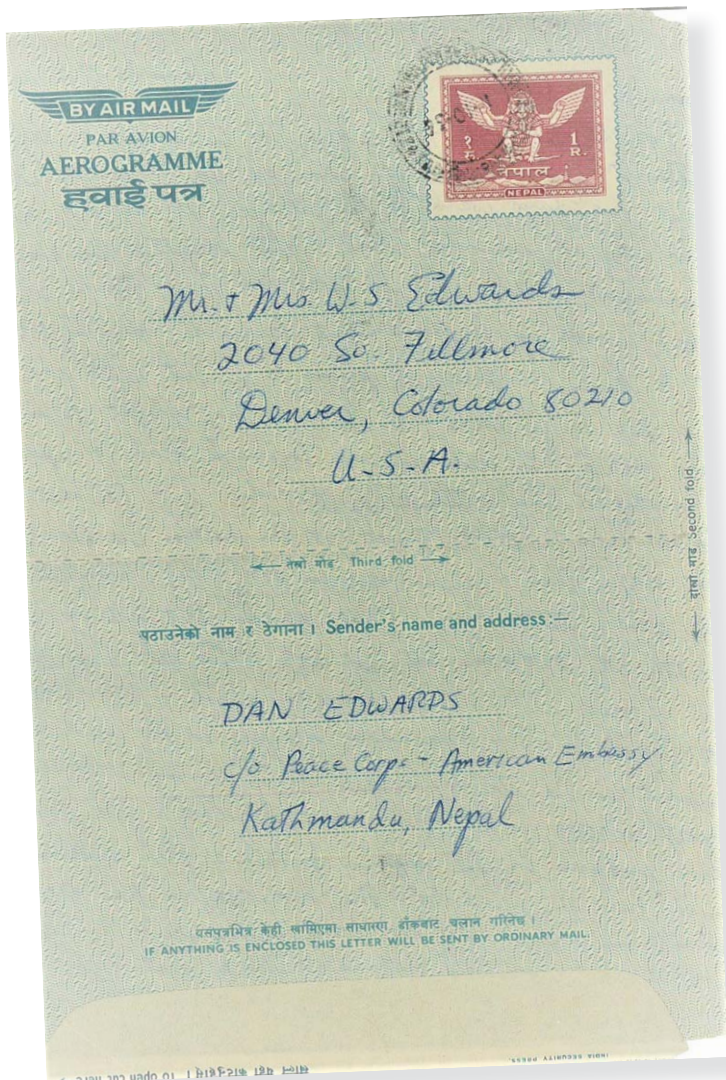 BY AIR MAIL
PAR AVION
AEROGRAMME
हवाई पत्र
१ रु.
1 R.
नेपाल
NEPAL
Mr. & Mrs. W-S Edwards
2040 So. Fillmore
Denver, Colorado 80210
U-S-A.
दोस्रो मोड Second fold
तेस्रो मोड Third fold
पठाउनेको नाम र ठेगाना । Sender's name and address:—
DAN EDWARDS
c/o Peace Corps - American Embassy
Kathmandu, Nepal
यसपत्रभित्र केही खामिएमा साधारण डाँकबाट चलान गरिनेछ ।
IF ANYTHING IS ENCLOSED THIS LETTER WILL BE SENT BY ORDINARY MAIL.
INDIA SECURITY PRESS.
To open cut here